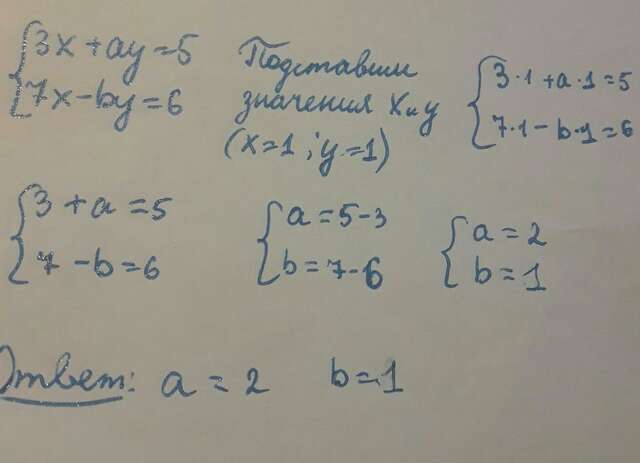 3x + ay = 5
7x - by = 6
Подставим
значения x и y
(x=1; y=1)
3·1 + a·1 = 5
7·1 - b·1 = 6
3 + a = 5
7 - b = 6
a = 5-3
b = 7-6
a = 2
b = 1
Ответ: a = 2 b = 1